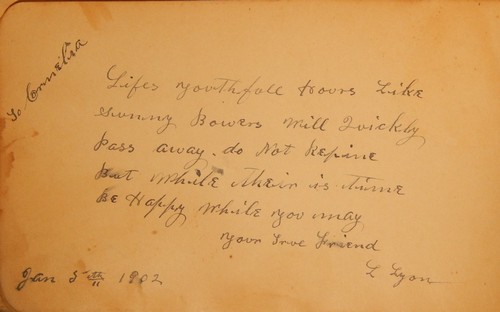 To Cornelia
Lifes youthfull hours Like
Sunny Bowers Will Quickly
Pass away. do Not Repine
But While their is time
Be Happy While you may
Your True Friend
L Lyon
Jan 5th 1902